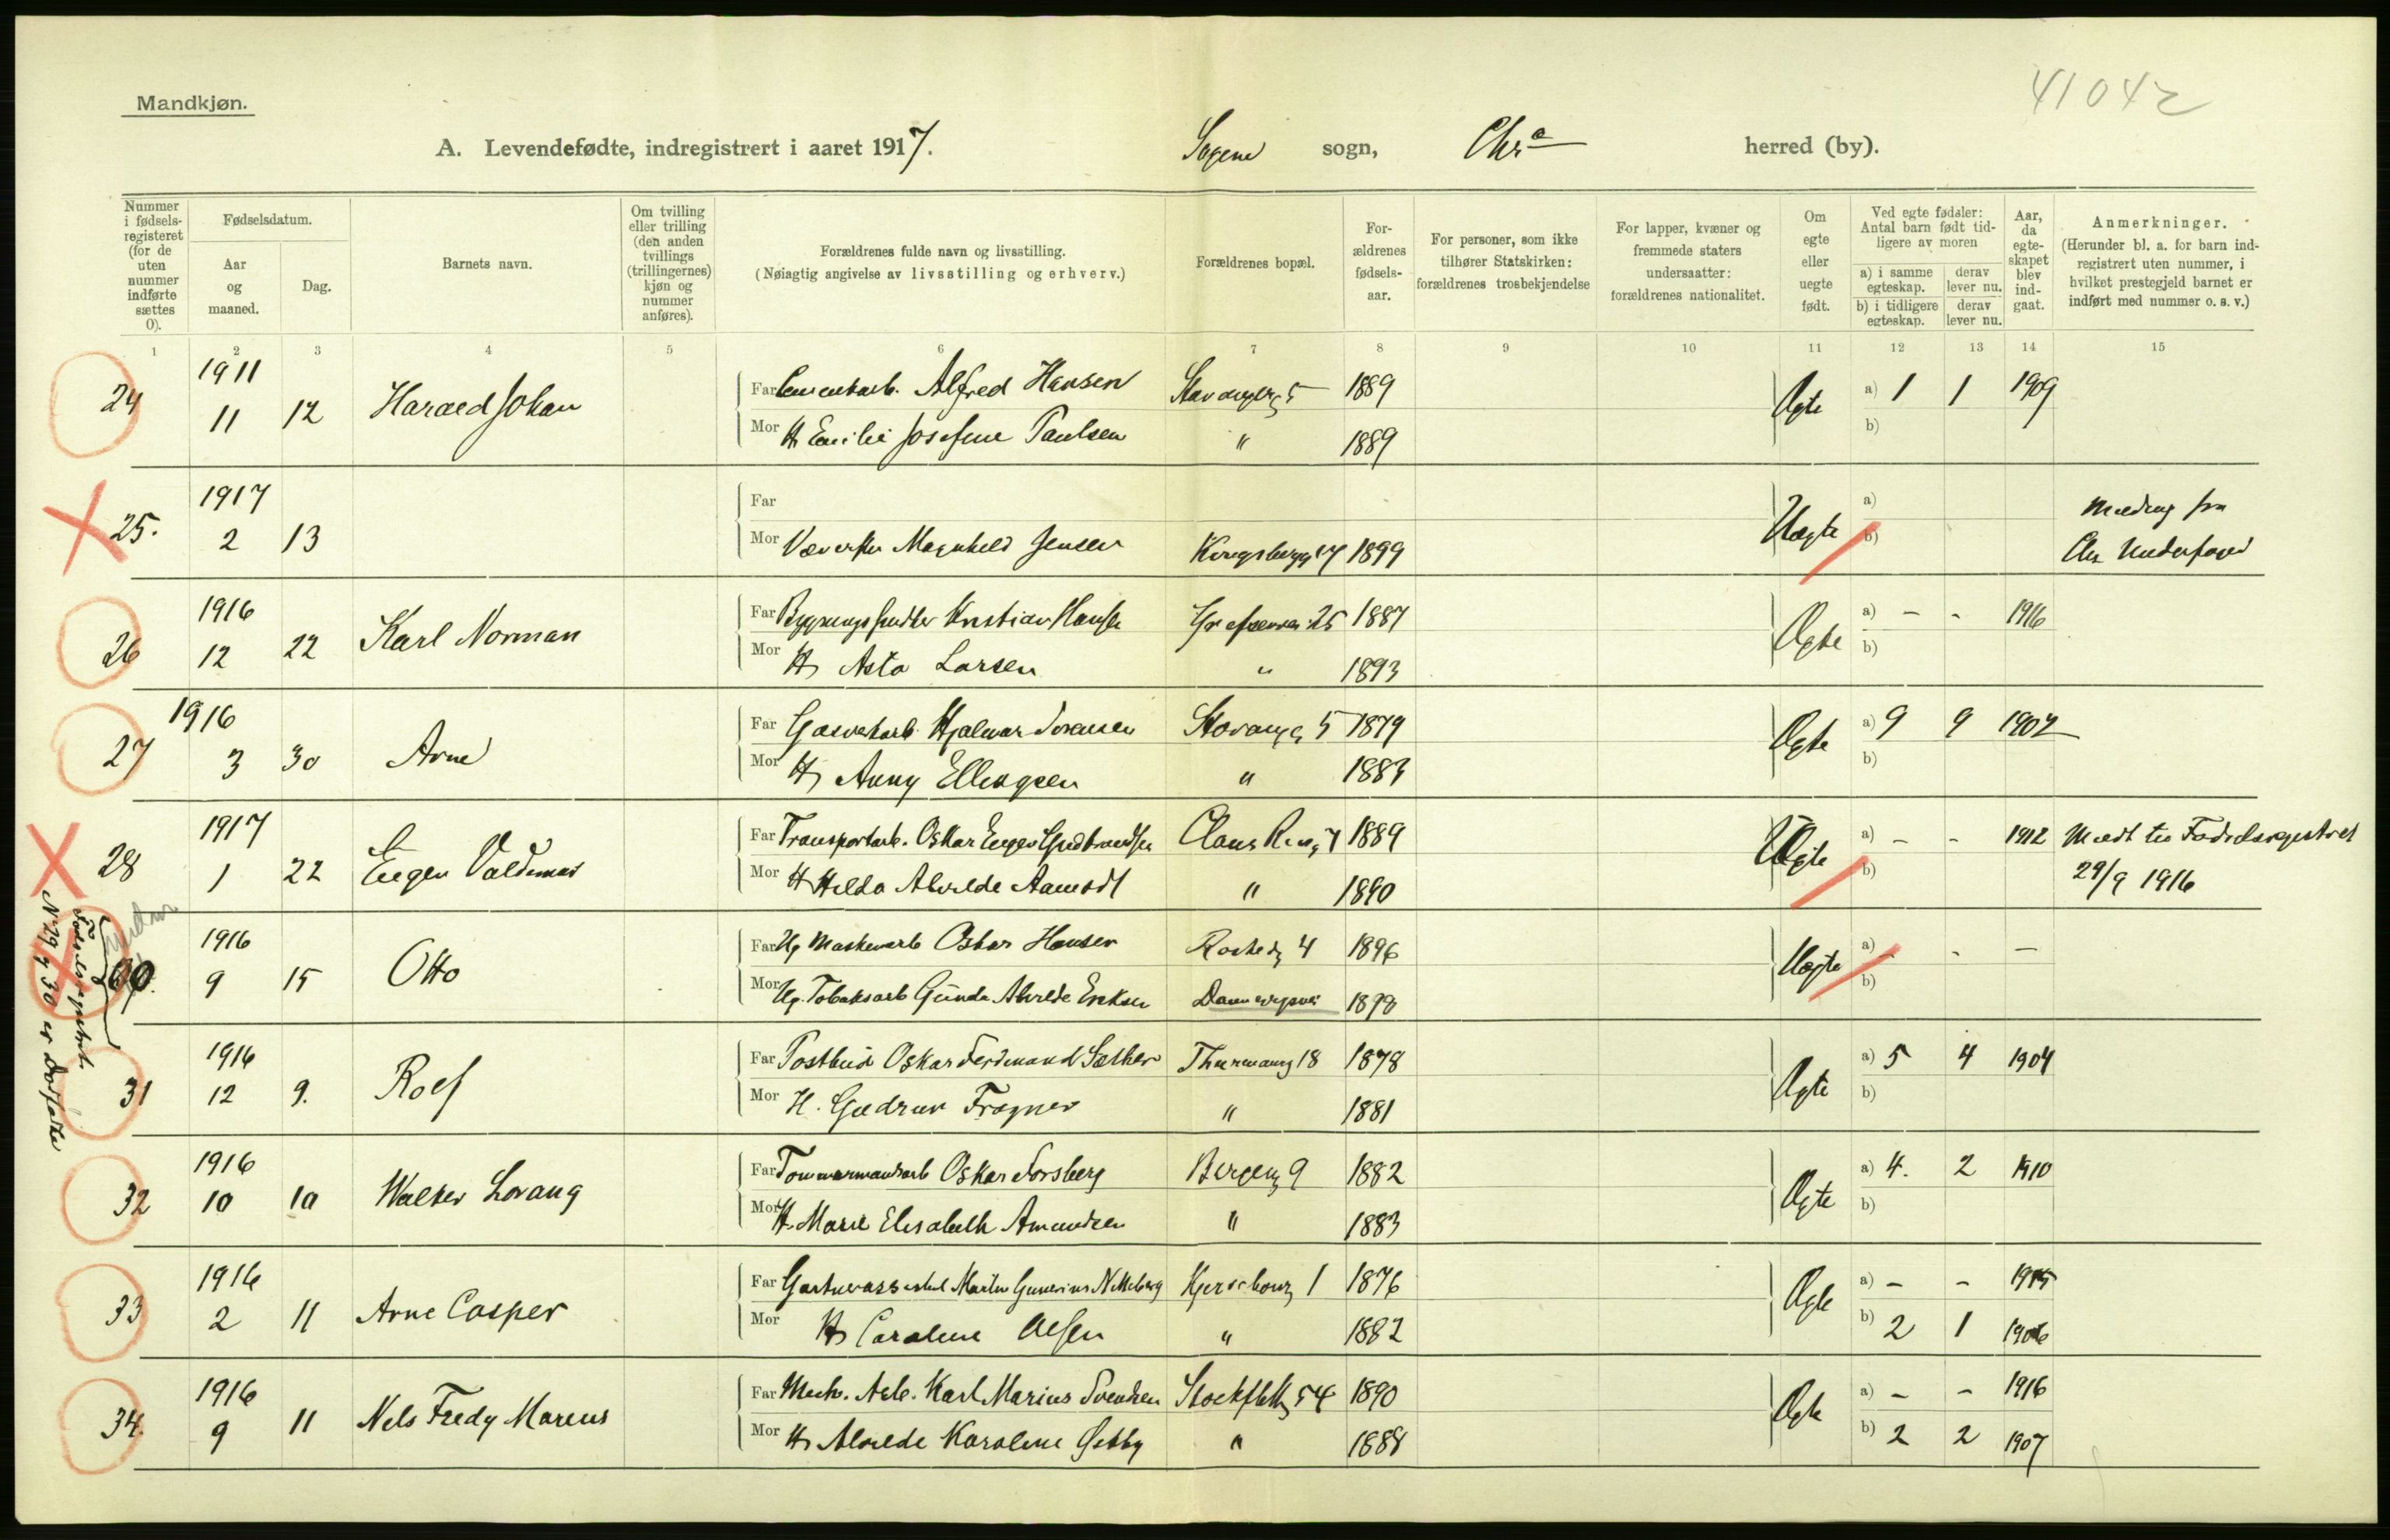 41042
Mandkjøn.
A. Levendefødte, indregistrert i aaret 1917. Sagene sogn, Chr.a herred (by).
Nummer i fødsels-registeret (for de uten nummer indførte sættes 0).
Fødselsdatum.
Aar og maaned.
Dag.
Barnets navn.
Om tvilling eller trilling (den anden tvillings (trillingernes) kjøn og nummer anføres).
Forældrenes fulde navn og livsstilling.
(Nøiagtig angivelse av livsstilling og erhverv.)
Forældrenes bopæl.
For-ældrenes fødsels-aar.
For personer, som ikke tilhører Statskirken: forældrenes trosbekjendelse
For lapper, kvæner og fremmede staters undersaatter: forældrenes nationalitet.
Om egte eller uegte født.
Ved egte fødsler: Antal barn født tid-ligere av moren
a) i samme egteskap. derav lever nu.
b) i tidligere egteskap. derav lever nu.
Aar, da egte-skapet blev ind-gaat.
Anmerkninger.
(Herunder bl. a. for barn ind-registrert uten nummer, i hvilket prestegjeld barnet er indført med nummer o. s. v.)
1 2 3 4 5 6 7 8 9 10 11 12 13 14 15
24 1911 11 12 Harald Johan
Far Alfred Hansen Stavangerg 5 1889 Egte a) 1 1 1909
Mor H Emilie Josefine Paulsen " 1889 b)
25. 1917 2 13
Far Uegte a) Melding fra
Mor Væverske Magnhild Jensen Kongsbergg 17 1899 b) Chr
26 1916 12 22 Karl Norman
Far Kristian Hansen Grefsenvei 25 1887 Egte a) - - 1916
Mor H Asta Larsen " 1893 b)
27 1916 3 30 Arne
Far Gasverkarb. Hjalmar Sørensen Stavangg 5 1879 Egte a) 9 9 1902
Mor H Anny Ellingsen " 1883 b)
28 1917 1 22 Eugen Valdemar
Far Transportarb. Oskar Eugen Gudbrandsen Claus 1889 a) - - 1912 Meldt til Fødselsregistret
Mor H Hilda Alvilde Aamodt " 1890 b) 29/9 1916
1916 9 15 Otto
Far Ug Maskinarb Oskar Hansen 4 1896 Uegte a) - - —
Mor Ug. Tobaksarb Gunda Alvilde Eriksen Dannevigsvei 1898 b)
No 29 & 30 er Dødfødte
Fødselsregistret
31 1916 12 9. Rolf
Far Postbud Oskar Ferdinand Sæther Thurmanng 18 1878 Egte a) 5 4 1904
Mor H. Gudrun Frogner " 1881 b)
32 1916 10 10 Walter Lorang
Far Tømmermandsarb Oskar Forsberg Bergeng 9 1882 Egte a) 4. 2 1910
Mor H. Marie Elisabeth Amundsen " 1883 b)
33 1916 2 11 Arne Casper
Far Martin Gunerius 1 1876 Egte a) - - 1915
Mor H Caroline Olsen " 1882 b) 2 1 1906
34. 1916 9 11 Nils Fredy Marius
Far Mech. Arb. Karl Marius Svendsen Stockflethg 54 1890 Egte a) - - 1916
Mor H Alvilde Karoline Østby " 1888 b) 2 2 1907